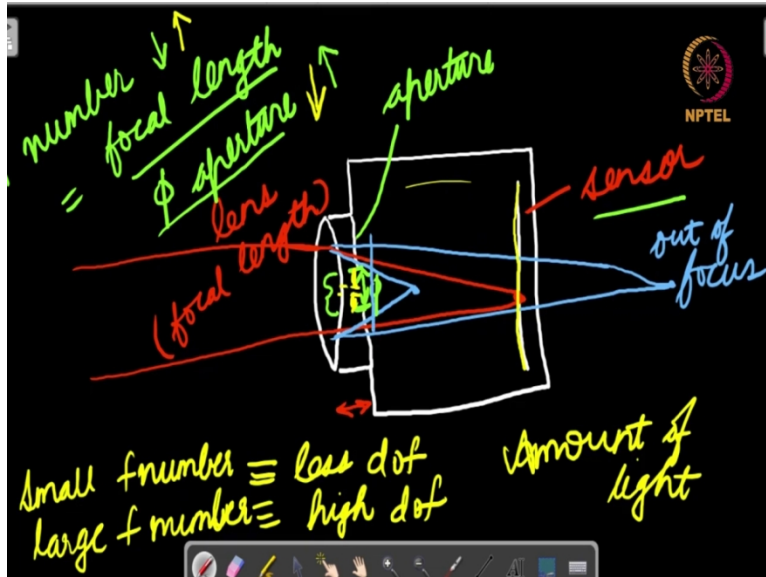 number ↓↑
= focal length
ϕ aperture ↓↑
aperture
NPTEL
lens
(focal length)
sensor
out of
focus
Small fnumber ≡ less dof
large f number ≡ high dof
Amount of
light